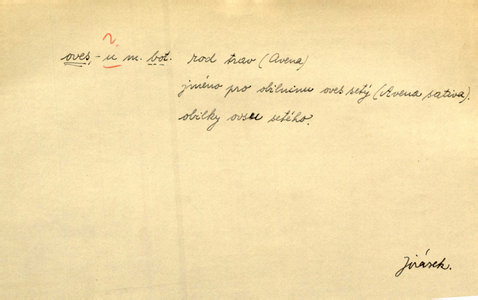 oves, -u m. bot. rod trav (Avena)
jméno pro obilninu oves setý (Avena sativa).
obilky ovsu setého.
Jirásek.